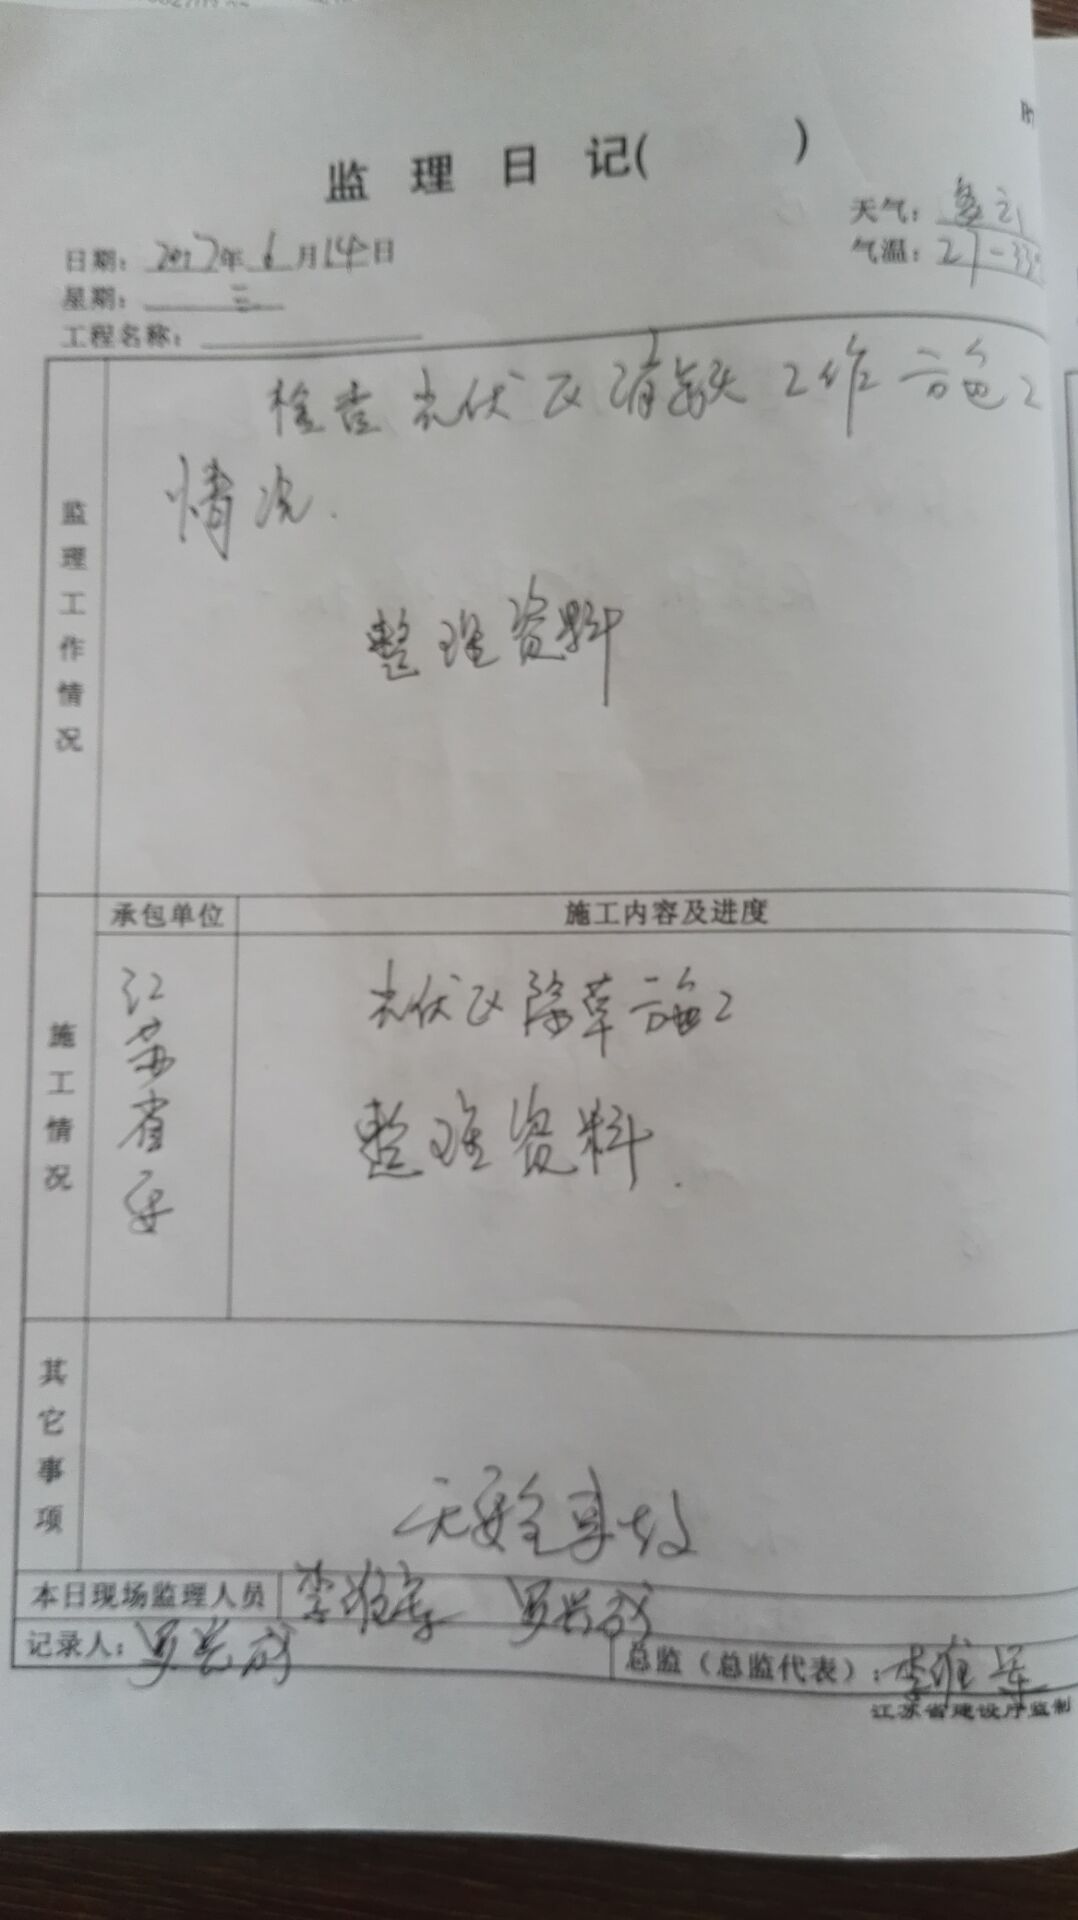 监理日记( )
天气：多云
日期：2017年6月14日
气温：27-33
星期：三
工程名称：
检查光伏区消缺工作施工
情况.
整理资料
监理工作情况
承包单位
施工内容及进度
江苏省安
光伏区除草施工
整理资料.
施工情况
其它事项
无安全事故
本日现场监理人员 李维军 罗兴成
记录人：罗兴成
总监（总监代表）：李维军
江苏省建设厅监制